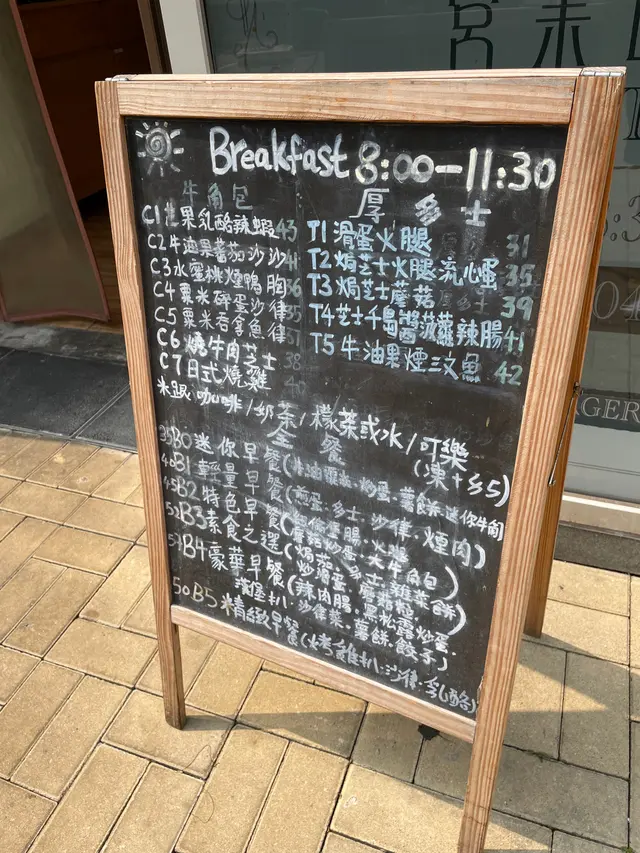 Breakfast 8:00-11:30
牛角包
C1 芒果乳酪辣蝦 43
C2 牛油果蕃茄沙沙 41
C3 水蜜桃煙鴨胸 36
C4 粟米碎蛋沙律 35
C5 粟米吞拿魚律
C6 燒牛肉芝士 38
C7 日式燒雞 40
厚多士
T1 滑蛋火腿 31
T2 焗芝士火腿流心蛋 35
T3 焗芝士蘑菇 39
T4 芝士千島醬菠蘿辣腸 41
T5 牛油果煙三文魚 42
跟咖啡/奶茶/檬茶或水/可樂
(凍+$5)
全餐
B0 迷你早餐(牛油粟米.炒蛋.薯餅.迷你牛角)
B1 輕量早餐(煎蛋.多士.沙律.煙肉)
B2 特色早餐(腸.火腿
B3 素食之選(蘑菇炒蛋.大牛角包)
B4 豪華早餐(辣肉腸.黑松露炒蛋.
漢堡扒.沙律菜.薯餅.餃子)
50 B5 精緻早餐(烤雞扒.沙律.乳酪)